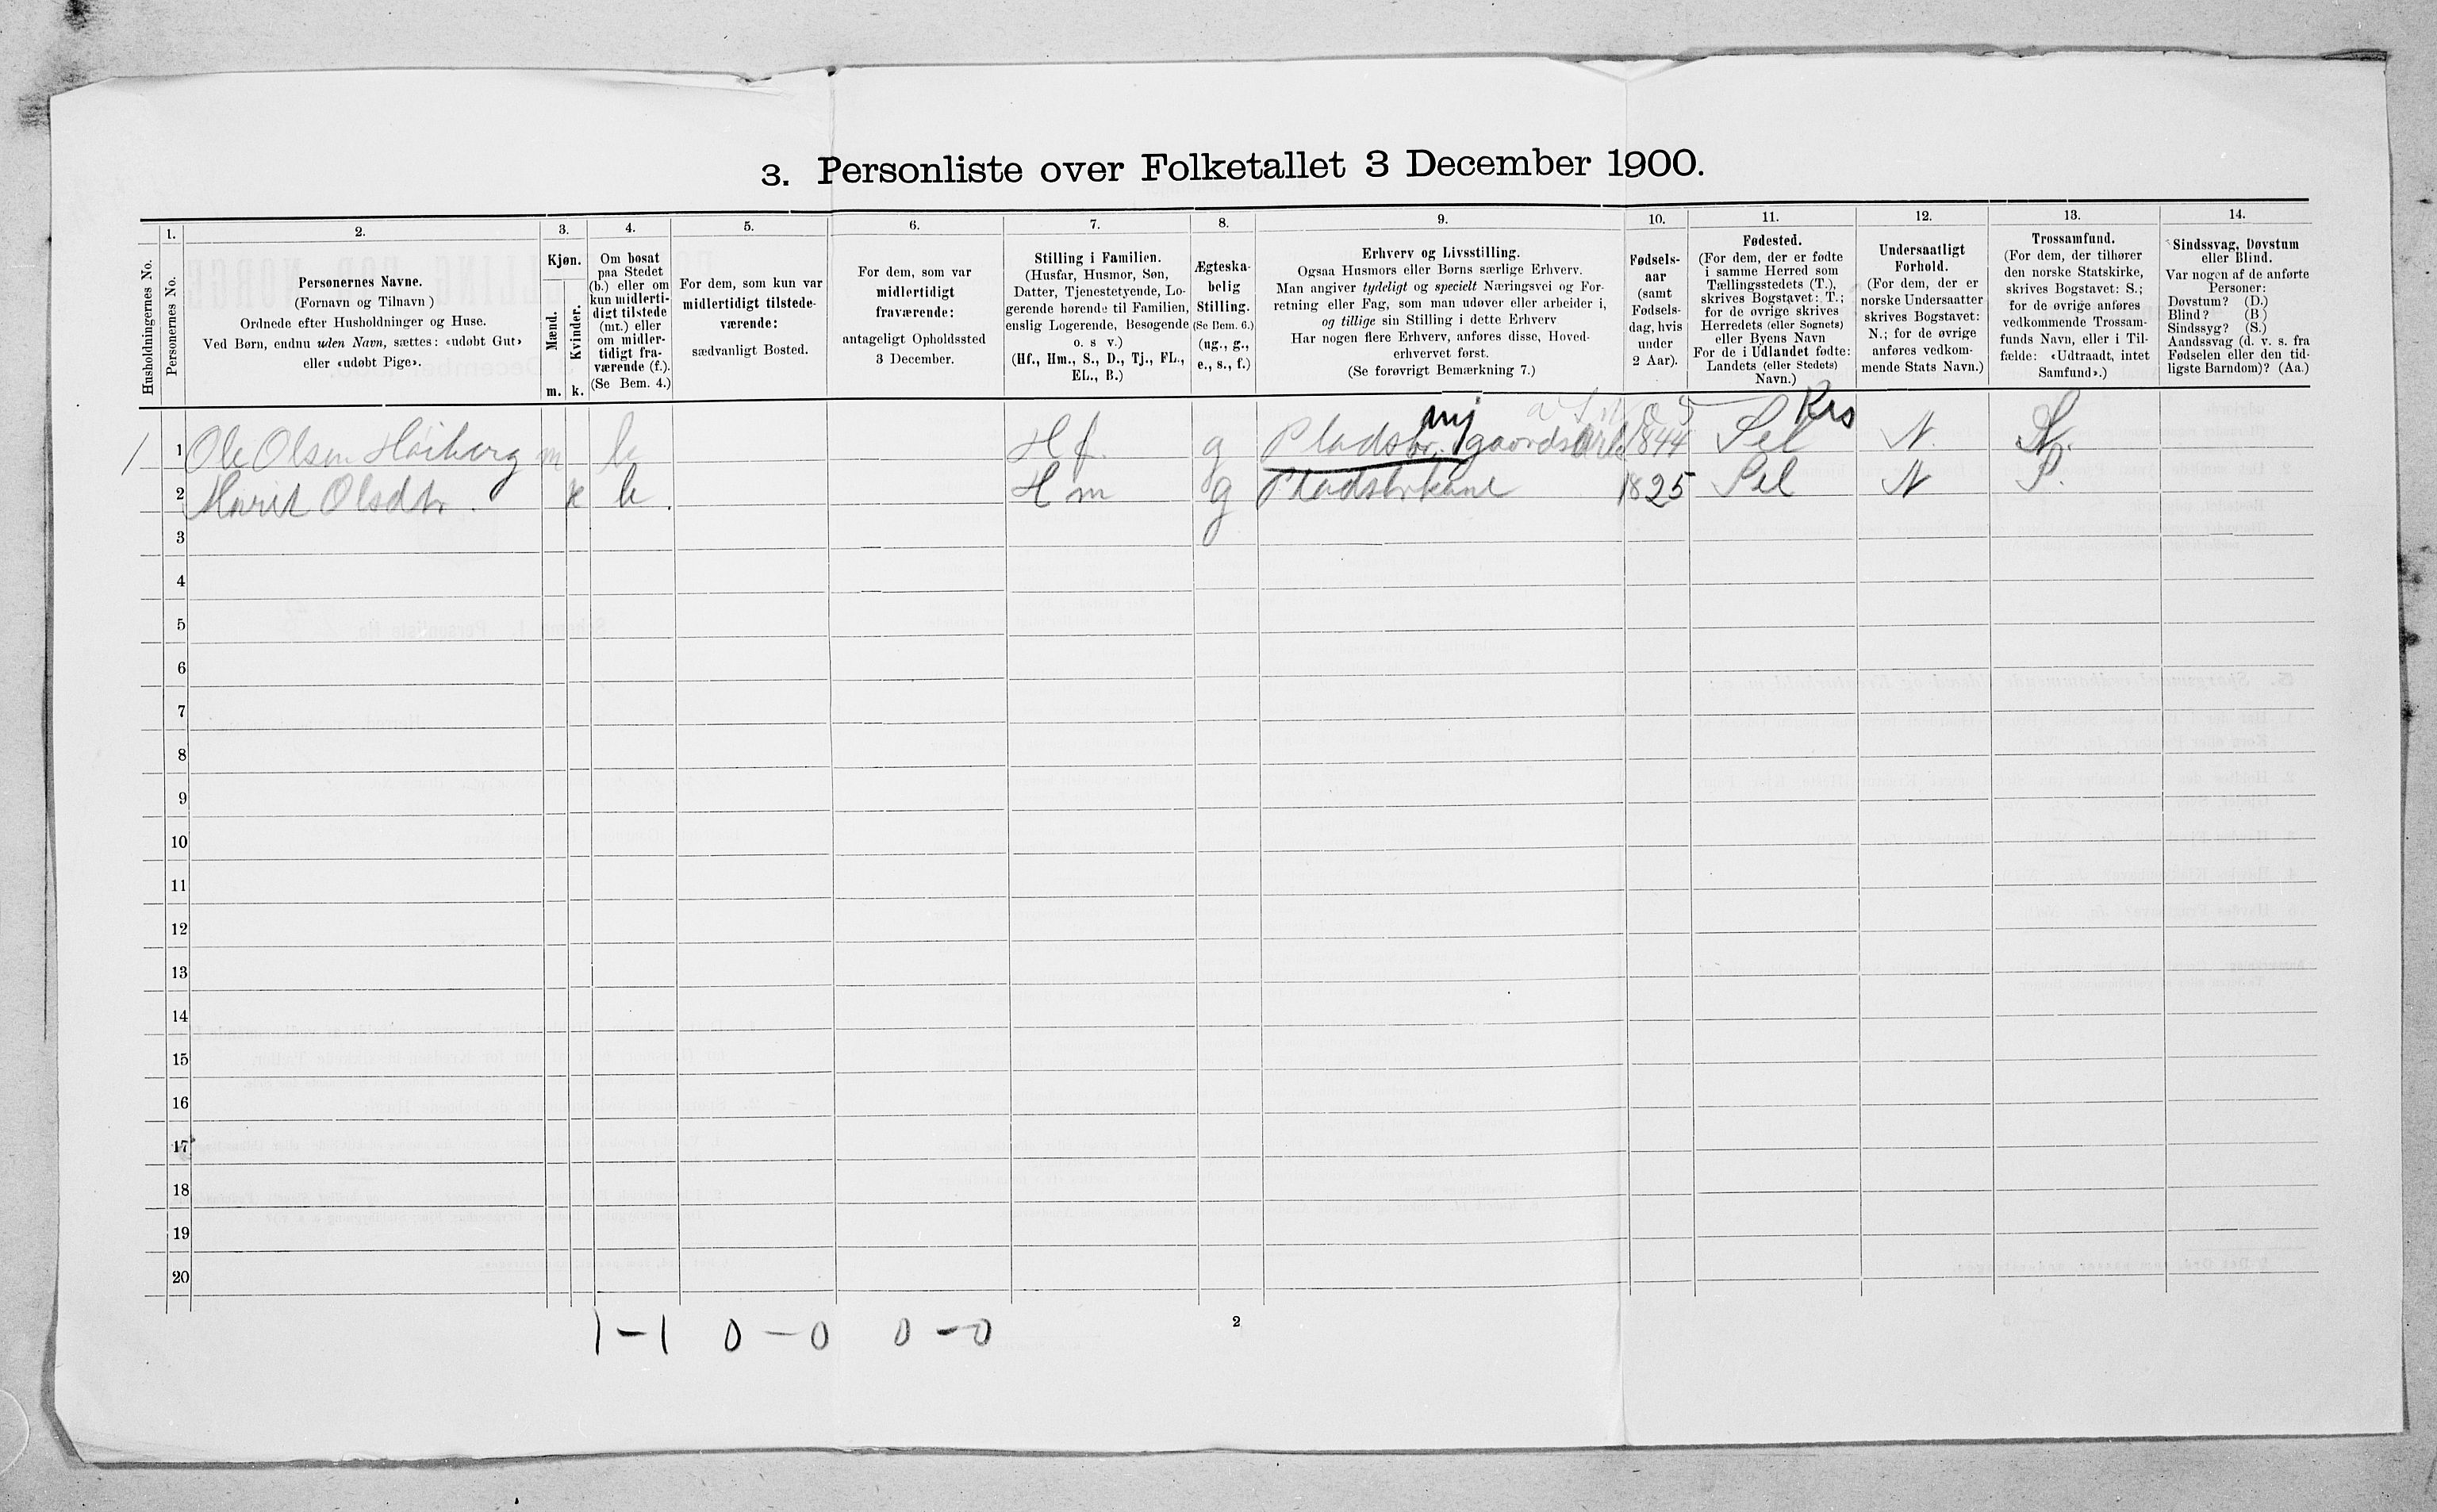 3. Personliste over Folketallet 3 December 1900.
1. 2. 3. 4. 5. 6. 7. 8. 9. 10. 11. 12. 13. 14.
Husholdningernes No.
Personernes No.
Personernes Navne.
(Fornavn og Tilnavn)
Ordnede efter Husholdninger og Huse.
Ved Børn, endnu uden Navn, sættes: «udøbt Gut»
eller «udøbt Pige».
Kjøn.
Mænd.
Kvinder.
m. k.
Om bosat
paa Stedet
(b.) eller om
kun midlerti-
digt tilstede
(mt.) eller
om midler-
tidigt fra-
værende (f.).
(Se Bem. 4.)
For dem, som kun var
midlertidigt tilstede-
værende:
sædvanligt Bosted.
For dem, som var
midlertidigt
fraværende:
antageligt Opholdssted
3 December.
Stilling i Familien.
(Husfar, Husmor, Søn,
Datter, Tjenestetyende, Lo-
gerende hørende til Familien,
enslig Logerende, Besøgende
o. s v.)
(Hf., Hm., S., D., Tj., FL.,
EL., B.)
Ægteska-
belig
Stilling.
(Se Bem. 6.)
(ug., g.,
e., s., f.)
Erhverv og Livsstilling.
Ogsaa Husmors eller Børns særlige Erhverv.
Man angiver tydeligt og specielt Næringsvei og For-
retning eller Fag, som man udøver eller arbeider i,
og tillige sin Stilling i dette Erhverv
Har nogen flere Erhverv, anføres disse, Hoved-
erhvervet først.
(Se forøvrigt Bemærkning 7.)
Fødsels-
aar
(samt
Fødsels-
dag, hvis
under
2 Aar).
Fødested.
(For dem, der er fødte
i samme Herred som
Tællingsstedets (T.),
skrives Bogstavet: T.;
for de øvrige skrives
Herredets (eller Sognets)
eller Byens Navn
For de i Udlandet fødte:
Landets (eller Stedets)
Navn.)
Undersaatligt
Forhold.
(For dem, der er
norske Undersaatter
skrives Bogstavet:
N.; for de øvrige
anføres vedkom-
mende Stats Navn.)
Trossamfund.
(For dem, der tilhører
den norske Statskirke,
skrives Bogstavet: S.;
for de øvrige anføres
vedkommende Trossam-
funds Navn, eller i Til-
fælde: «Udtraadt, intet
Samfund».)
Sindssvag, Døvstum
eller Blind.
Var nogen af de anførte
Personer:
Døvstum? (D.)
Blind? (B.)
Sindssyg? (S.)
Aandssvag (d. v. s. fra
Fødselen eller den tid-
ligste Barndom)? (Aa.)
mj
1 1 Ole Olsen Høiberg m b Hf. g Pladsbr. gaardsarb 1844 Sel N. S.
2 Marit Olsdtr. k b. Hm g Pladsbrkone 1825 Sel N S.
3
4
5
6
7
8
9
10
11
12
13
14
15
16
17
18
19
20
1 – 1 0 – 0 0 – 0
2